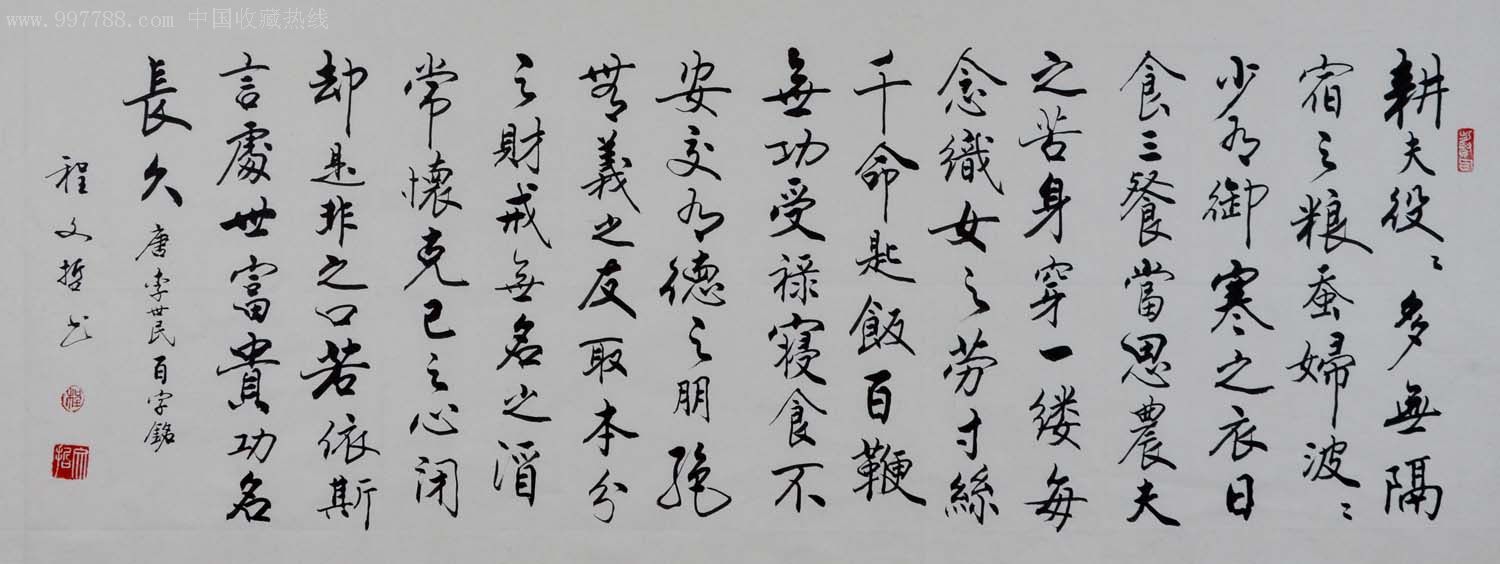 www.997788.com 中国收藏热线
耕夫役〻多無隔
宿之粮蚕婦波〻
少有御寒之衣日
食三餐當思農夫
之苦身穿一缕每
念織女之劳寸絲
千命匙飯百鞭
無功受禄寢食不
安交有德之朋绝
無義之友取本分
之財戒無名之酒
常懷克己之心闭
却是非之口若依斯
言處世富貴功名
長久
唐李世民百字銘
程文哲书
程
文哲